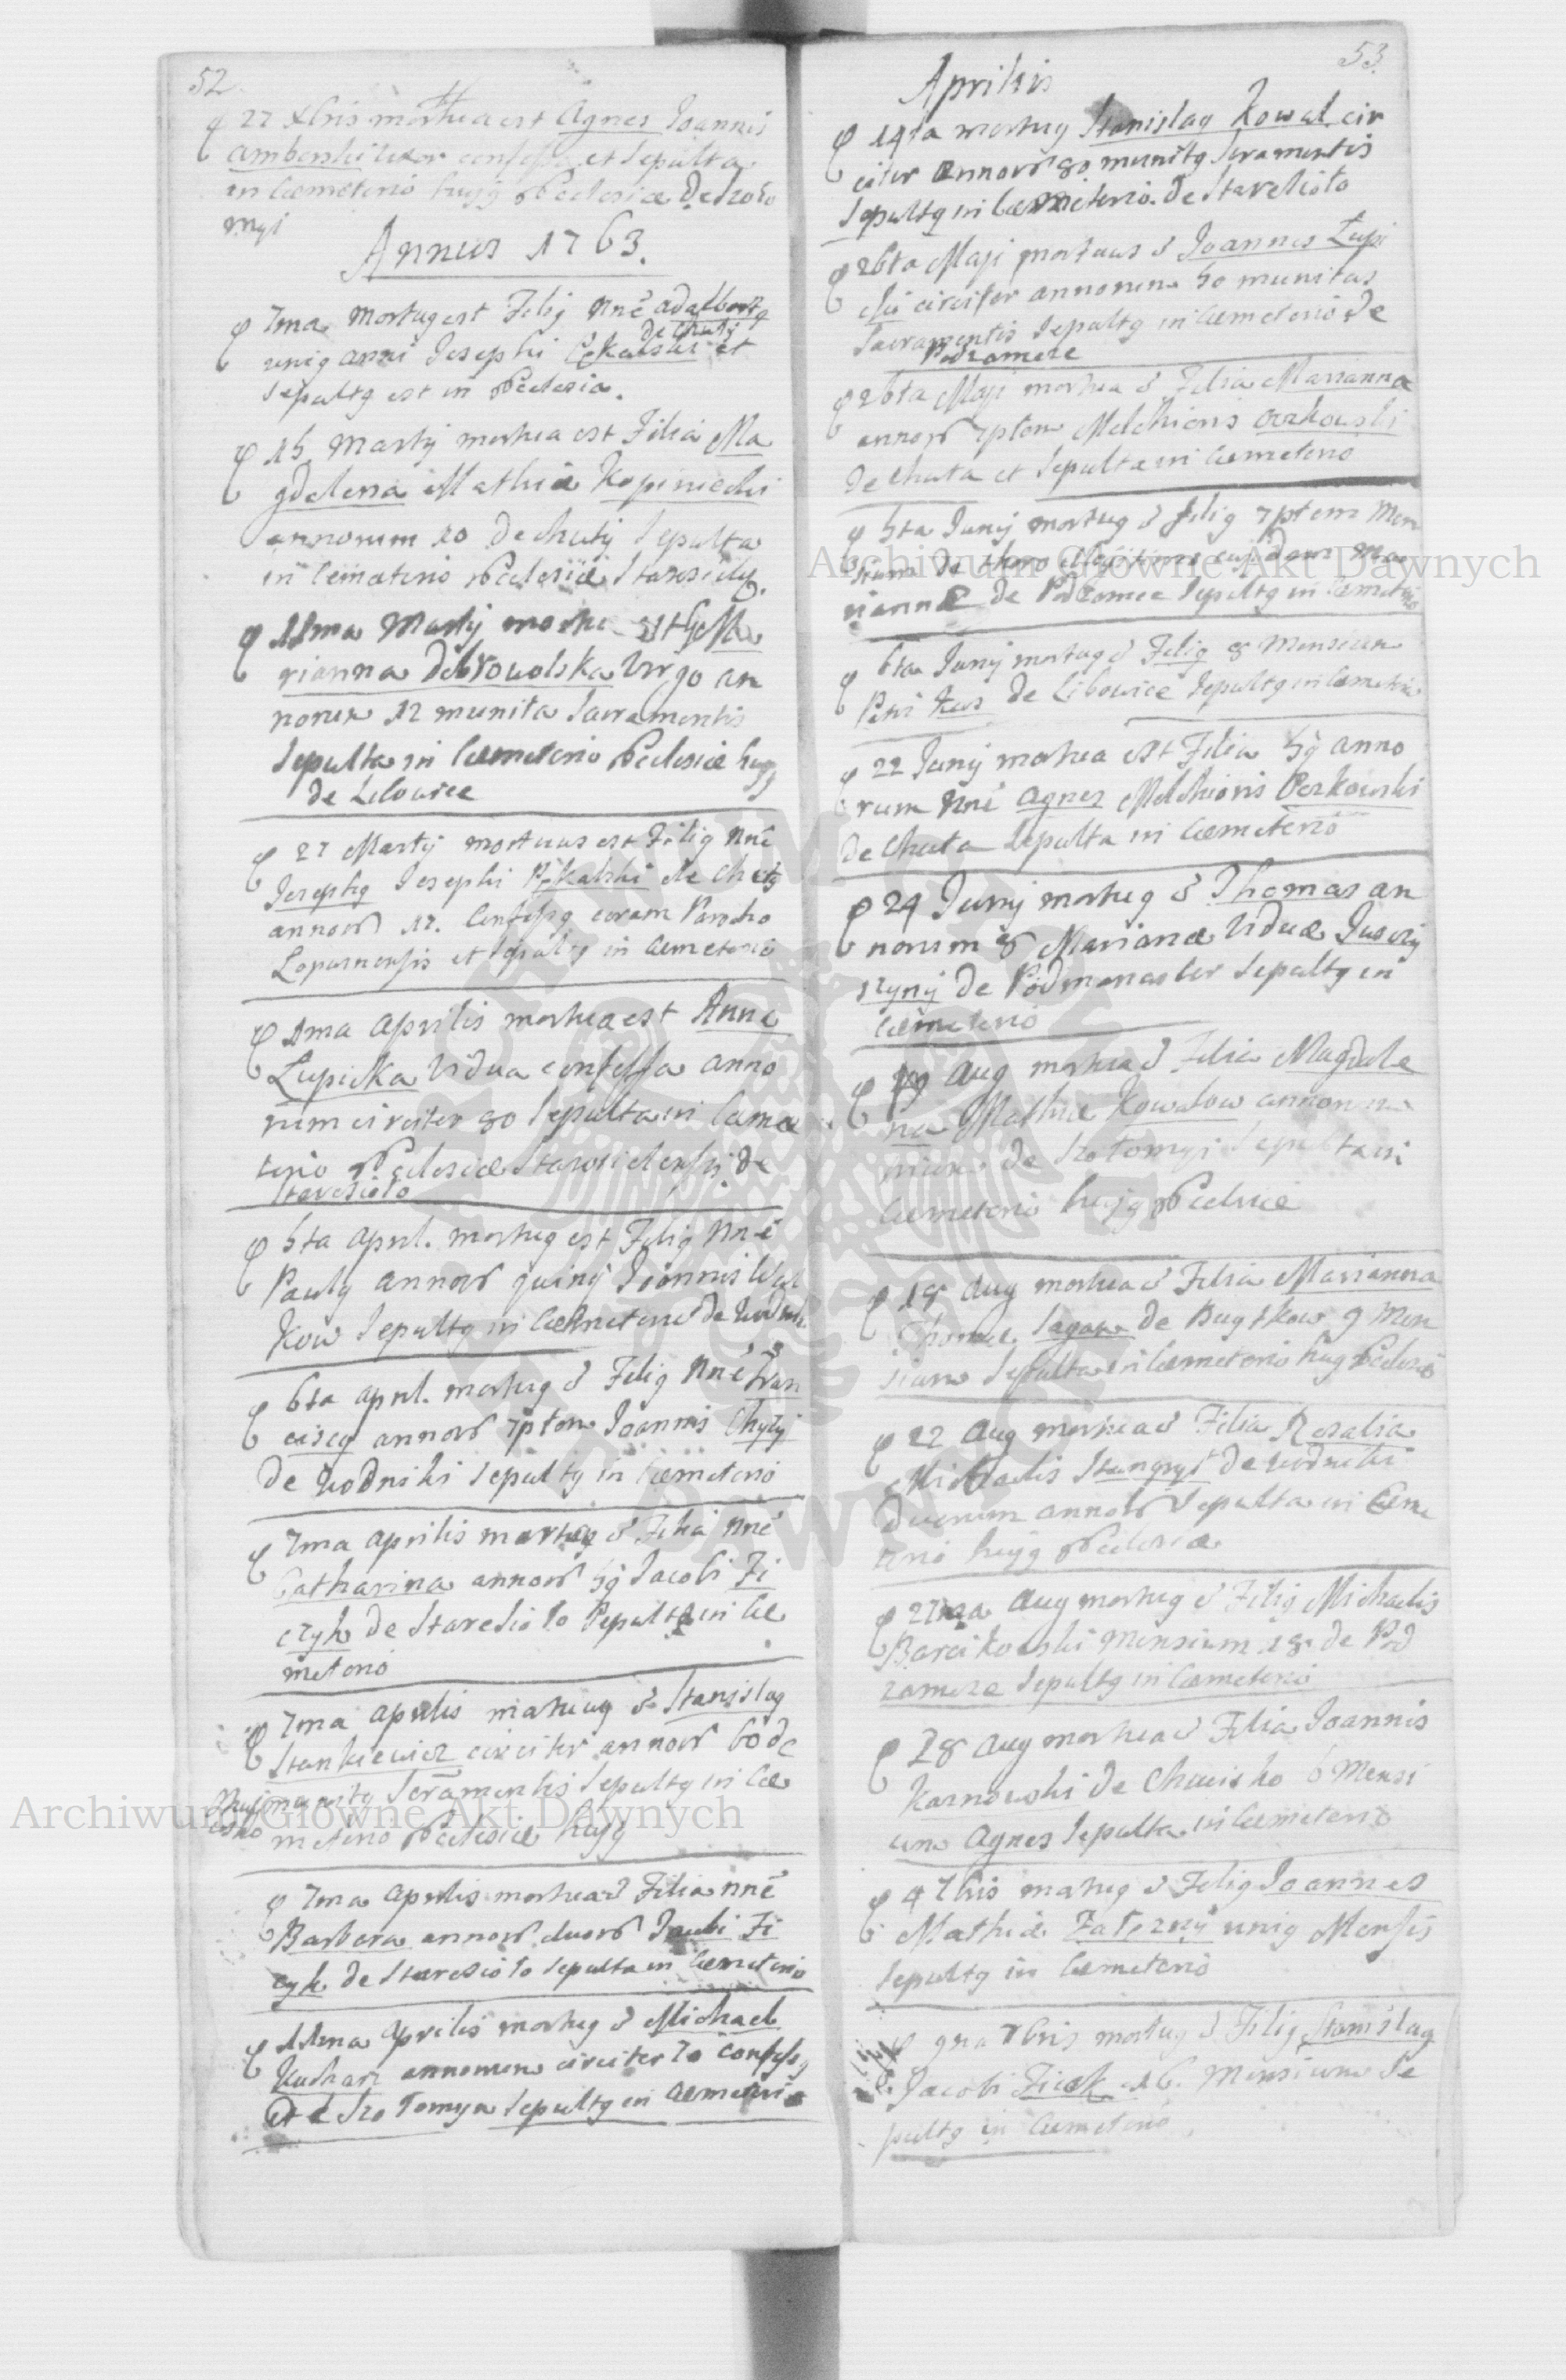 52
27 Xbris mortua est Agnes Joannis
uxor confessa et sepulta
in Caemeterio hujg Ecclesiae de Szoło
myi
Annus 1763.
7ma mortug est Filig nné Adalbertg
de Chuty
unig anni Josephi et
sepultg est in Ecclesia.
15 Martij mortua est Filia Ma
gdalena Mathiae Kopiniecki
annorum 20 de Chuty Sepulta
in Cemeterio Ecclesiae
11ma Martij est Ma
rianna Dobrowolska Virgo an
norum 12 munita Sacramentis
Sepulta in Caemeterio Ecclesiae hujg
de Libowice
27 Martij mortuus est Filig nné
Josephg Josephi de Chuty
annor 17. Confessg coram Parocho
et sepultg in Caemeterio
1ma Aprilis mortua est Anna
Lupicka Vidua confessa anno
rum circiter 80 Sepulta in Caeme
terio Ecclesiae de
Staresioło
5ta April. mortug est Filig nné
Paulg annor Joannis Wal
kow Sepultg in Caemeterio de Wodniki
6ta April. mortug é Filig nné Fran
ciscg annor 7ptem Joannis Chyży
de Wodniki Sepultg in Caemeterio
7ma Aprilis mortug é Filia nné
Catharina annor 5g Jacobi Fi
czyk de Staresioło Sepulta in Cae
meterio
7ma Aprilis mortuug é Stanislag
Stankiewicz circiter annor 60 de
munitg Scramentis Sepultg in Cae
meterio Ecclesiae hujg
7ma Aprilis mortua é Filia nné
Barbara annor duor Jacobi Fi
czyk de Staresioło Sepulta in Caemeterio
11ma Aprilis mortug é Michael
Kucharz annorum circiter 70 confessg
Sepultg in Caemeterio
53
Aprilis
14ta mortug Stanislag Kowal cir
citer annor 80 munitg Scramentis
Sepultg in Caemeterio de Staresioło
26ta Maji mortuus é Joannes Łupi
cki circiter annorum 50 munitus
Sacramentis Sepultg in Caemeterio de
Podzamcze
26ta Maji mortua é Filia Marianna
annor 7ptem Melchioris Oczkowski
de Chuta et Sepulta in Caemeterio
5ta Junij mortug é Filig 7ptem Men
sium de thoro illegitimo cujusdam Ma
riannae de Podzamcze Sepultg in Caemeterio
6ta Junij mortug é Filig 8 Mensium
Petri Kus de Libowice Sepultg in Caemeterio
22 Junij mortua est Filia 5g anno
rum nné Agnes Melchioris Oczkowski
de Chuta Sepulta in Caemeterio
24 Junij mortug é Thomas an
norum 8 Mariannae Viduae
de Podmonaster Sepultg in
Caemeterio
Aug mortua é Filia Magdale
na Mathiae Kowalow annorum
de Szołomyi Sepulta in
Caemeterio hujg Ecclesiae
18 Aug mortua é Filia Marianna
Thomae Sagan de 9 Men
sium Sepulta in Caemeterio hujg Ecclesiae
22 Aug mortua é Filia Rosalia
Michaelis de Wodniki
duorum annor Sepulta in Caeme
terio hujg Ecclesiae
27ma Aug mortug é Filig Michaelis
Barcikowski Mensium 18 de Pod
zamcze Sepultg in Caemeterio
28 Aug mortua é Filia Joannis
Karnowski de Chwisko 6 Mensi
um Agnes Sepulta in Caemeterio
4 7bris mortug é Filig Joannes
Mathiae unig Mensis
Sepultg in Caemeterio
9na 7bris mortug é Filig Stanislag
Jacobi 16. Mensium Se
pultg in Caemeterio
Archiwum Główne Akt Dawnych
Archiwum Główne Akt Dawnych